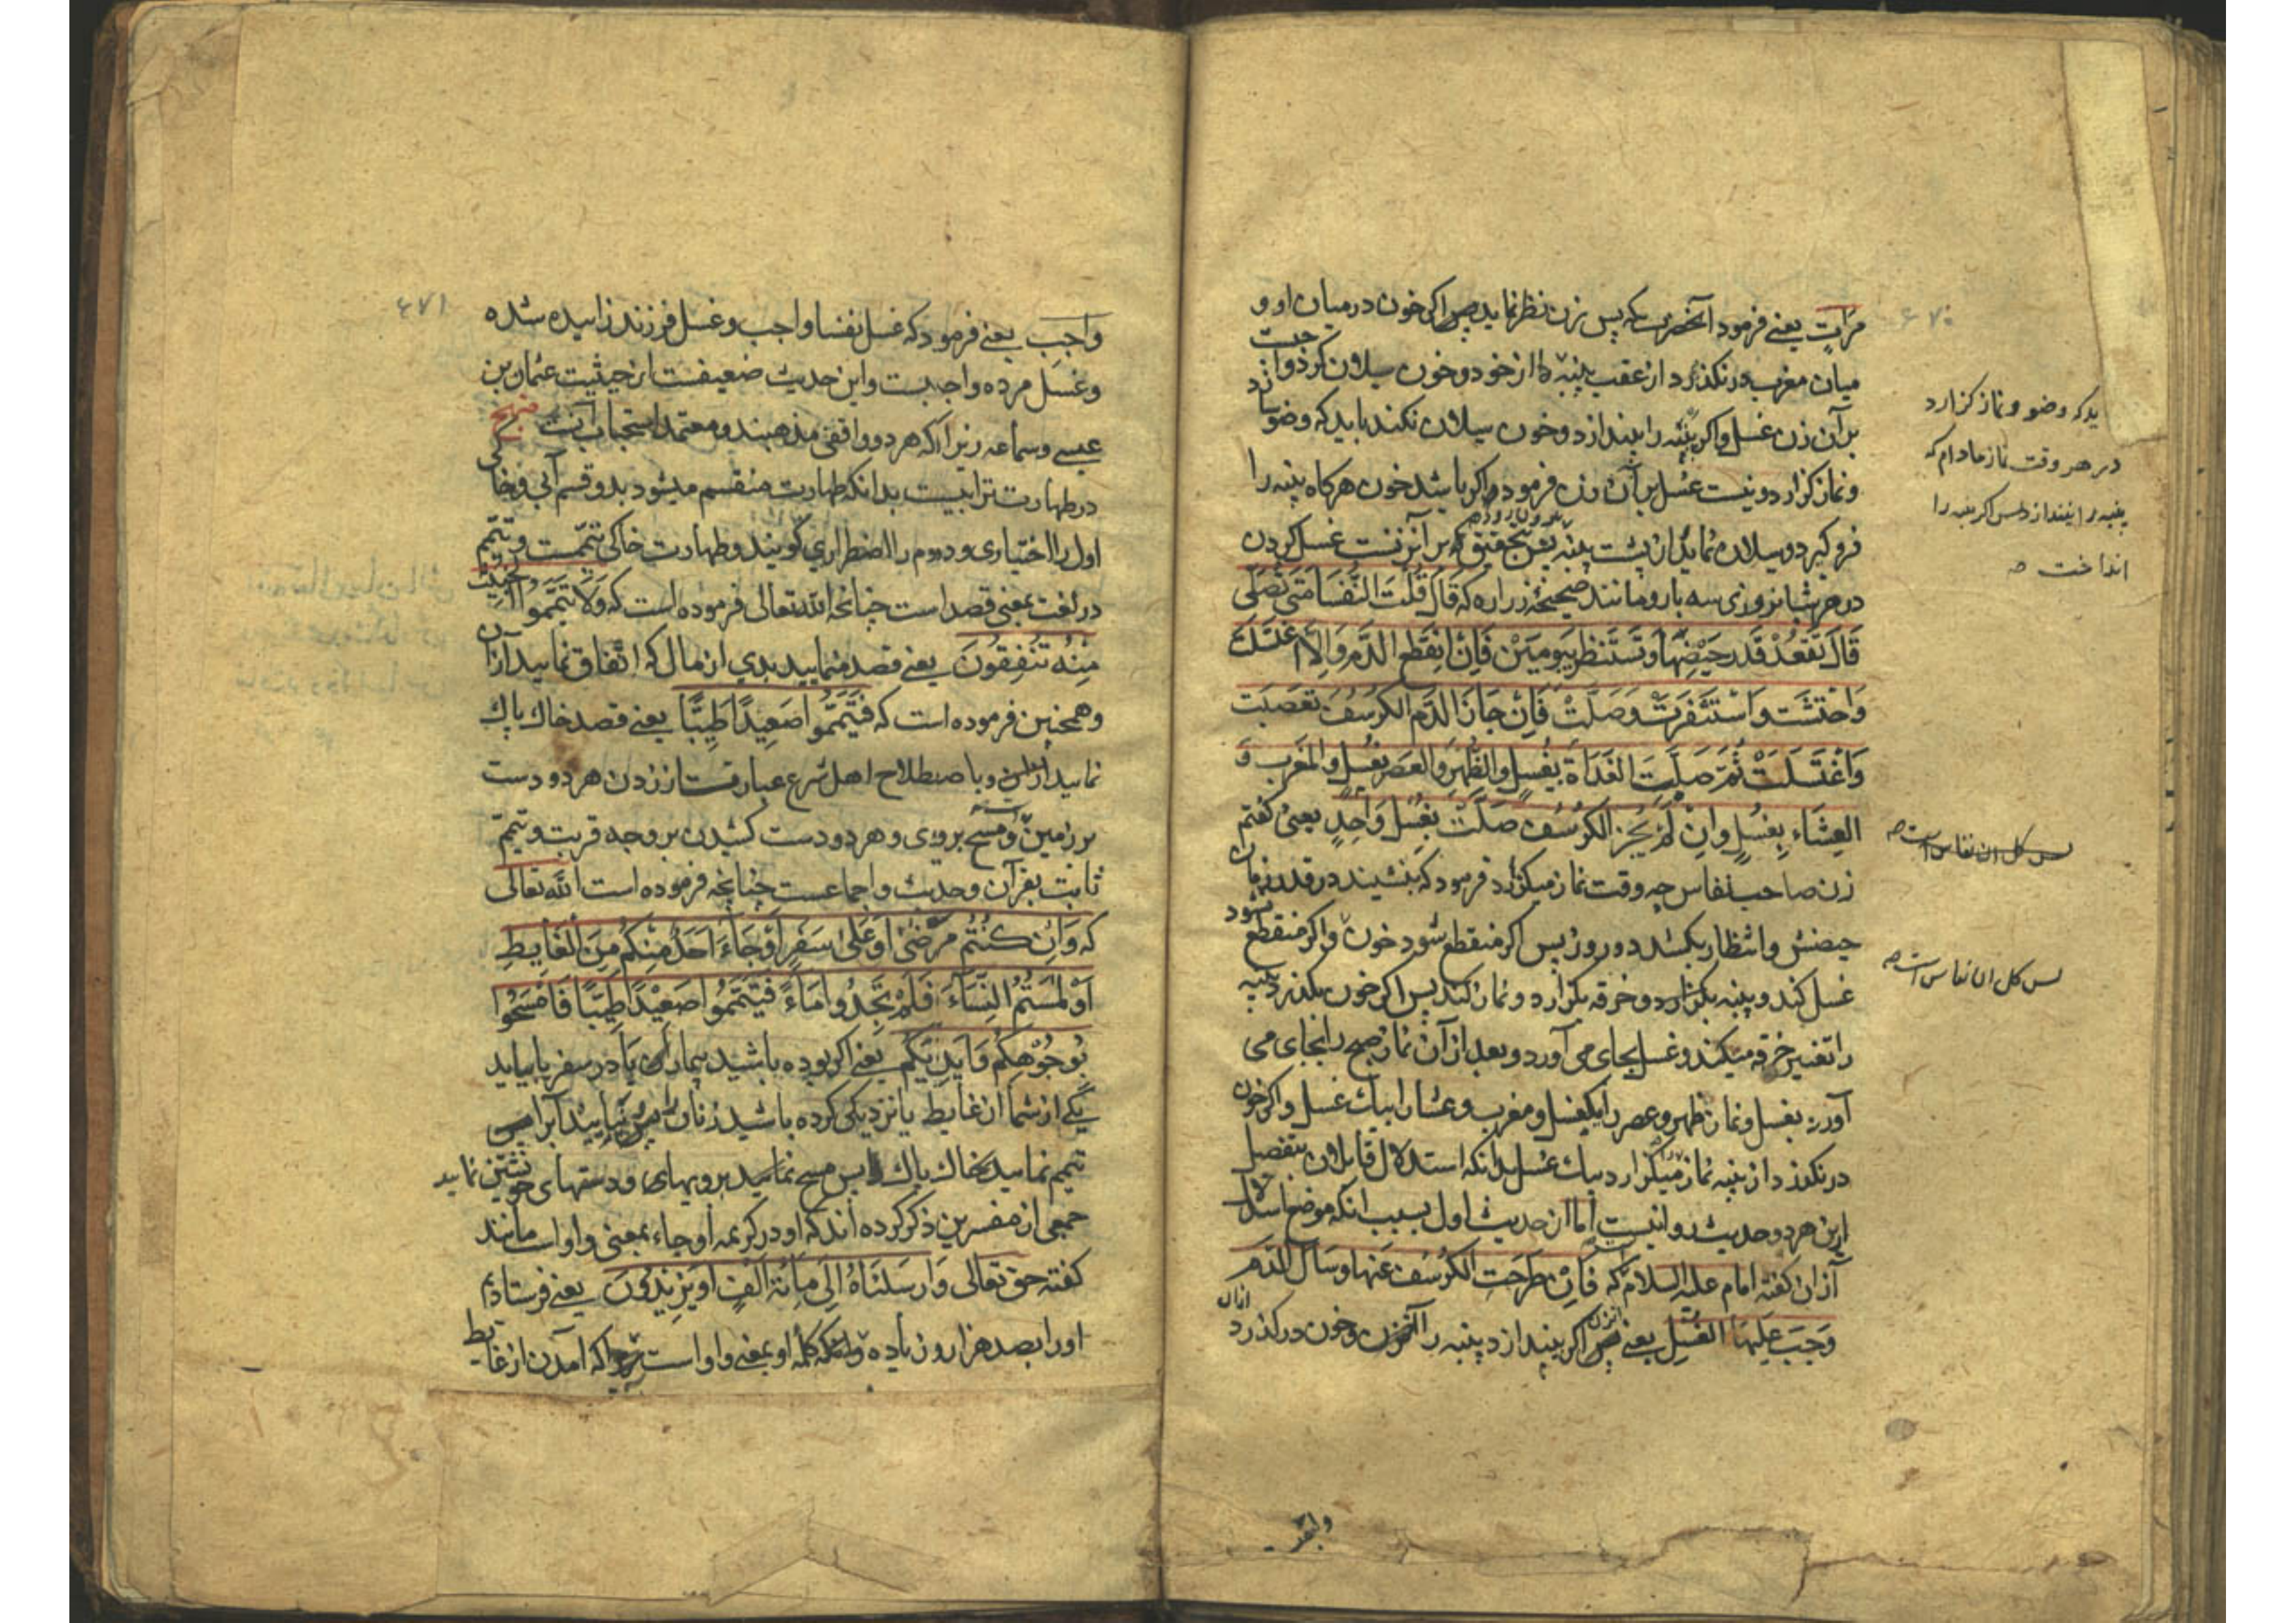 مرات یعنے فرمود آنحضرت که پس زن نظر نماید پس اکر خون در میان او و
میان مغرب در نکذرد از عقب پنبه از خود و خون سیلان کرد واجبست
بر آن زن غسل واکر پنبه را بیندازد و خون سیلان نکند باید که وضو سازد
ونماز کزارد و نیست غسل بر آن زن فرمود واکر باشد خون هرکاه پنبه را
فروکیرد و سیلان نماید از پشت پنبه پس بتحقیق که بر آنزنست غسل کردن
در هر شبانروزی سه بار و مانند صحیحهٔ زراره که قَالَ قُلْتَ النُّفَسَا مَتَی تُصَلِّی
قَالَ تَقعُدْ قَدرَ حَیْضِهَا وَتَسْتَنظِر بِیَومَیَنْ فَاِنْ اِنقَطَع الدَّم وَاِلَّا اغْتَسَلَتْ
وَاحْتَشَت وَاسْتَثْفَرَتْ وَصَلَّتْ فَاِنْ جَازَ الدَّم الکُرسُف تعَصّبَت
وَاغْتَسَلَتْ ثُمَّ صَلَّتِ الغَدَاةَ بِغُسلٍ والظُّهرَ وَالعَصرَ بغُسلٍ والمَغرب وَ
العِشَاءِ بِغُسلٍ وَاِنْ لَمْ یَجُزِ الکُرْسُف صَلَّتْ بِغُسلٍ وَاحِدٍ یعنی کفتم
زن صاحب نفاس چه وقت نماز میکزارد فرمود که بنشیند در قدر زمان
حیضش وانتظار بکشد دو روز پس اکر منقطع شود خون واکر منقطع نشود
غسل کند و پنبه بکزارد و خرقه بکزارد و نماز کند پس اکر خون بکذرد پنبه
را تغییر خرقه میکند و غسل بجای می آورد و بعد از آن نماز صبح را بجای می
آورد بغسل و نماز ظهر و عصر را بیکغسل و مغرب و عشا را بیک غسل واکر خون
در نکذرد از پنبه نماز میکزارد بیک غسل بدانکه استدلال قایل اون بتفصیل
این هر دو حدیث روا نیست اما از حدیث اول بسبب آنکه موضع استدلال
از ان کفته امام علیه السلام که فَاِنْ طَرَحَتِ الکُرسُف عَنهَا وسَالَ الدَّم
وَجَبَ عَلَیهَا الغُسل یعنے پس اکر بیندازد پنبه را آنزن و خون درکذرد ازان
یدکه وضو و نماز کزارد
در هر وقت نماز مادام که
پنبه را نیندازد پس اکر پنبه را
انداخت
پس کل ان نفاس است
پس کل ان نفاس است
۶۷۱
واجَبِ یعنے فرمود که غسل نفسا واجب وغسل فرزند زاییده شده
وغسل مرده واجبست واین حدیث ضعیفست از حیثیت عثمان بن
عیسے وسماعه زیرا که هر دو واقفی مذهبند ومعتمد استحباب آنست منهج
در طهارت ترابیست بدانکه طهارت منقسم میشود بدو قسم آبی وخاکی
اول را اختیاری ودوم را اضطراری کویند وطهارت خاکی تیمّمست وتیمّم
در لغت بمعنی قصد است چنانچه الله تعالی فرموده است که وَلَا تَیَمَّمُوا الْخَبِیثَ
مِنْهُ تُنْفِقُونَ یعنے قصد منمایید بدی از مال که اتفاق نمایید از ان
وهمچنین فرموده است که فَتَیَمَّمُوا صَعِیدًا طَیِّبًا یعنے قصد خاك پاك
نمایید وباصطلاح اهل شرع عبارتست از زدن هر دو دست
بر زمین ومسح بروی وهر دو دست کشیدن بر وجه قربت وتیمّم
ثابت بقرآن وحدیث واجماعست چنانچه فرموده است الله تعالی
که وَاِن کُنْتُم مَرْضَیٰ اَوْ عَلیٰ سَفَرٍ اَوْ جَاءَ اَحَدٌ مِنْکُمْ مِنَ الْغَایِطِ
اَوْ لٰمَسْتُمُ النِّسَاءَ فَلَمْ تَجِدُوا مَاءً فَتَیَمَّمُوا صَعِیْدًا طَیِّبًا فَامْسَحُوا
بِوُجُوْهِکُمْ وَاَیدِیکُم یعنے اکر بوده باشید بیمار یا در سفر یا بیاید
یکے از شما از غایط یا نزدیکی کرده باشید زنان را پس نیابید آب را پس
تیمم نمایید بخاك پاك پس مسح نمایید برویهای ودستهای خویشتن نمایید
جمعی از مفسرین ذکر کرده اند که او در کریمه او جاء بمعنی واو است مانند
کفته حق تعالی وَاَرسَلْنَاهُ اِلَی مِائَة اَلْفٍ اَوْ یَزِیْدُوْنَ یعنے فرستادیم
اورا بصد هزار وزیاده وآنکه کلمه او بمعنی واو است که آمدن از غایط